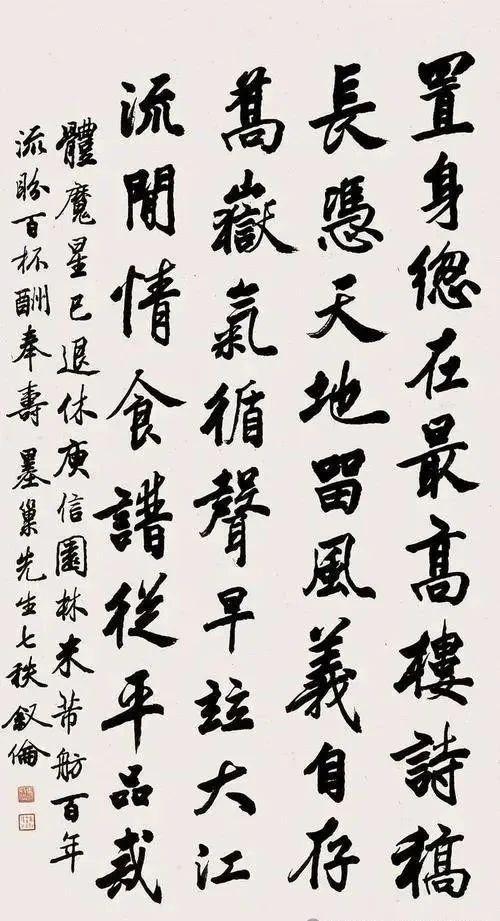 置身總在最高樓詩稿
長憑天地留風義自存
嵩嶽氣循聲早竝大江
流閒情食譜從平品戒
體魔星已退休庾信園林米芾舫百年
流盼百杯酬奉壽墨巢先生七秩敘倫